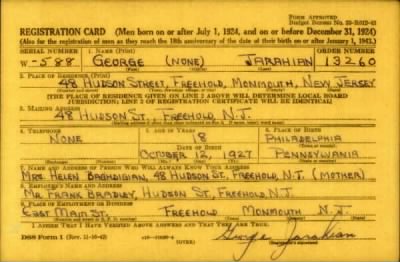 Form Approved
Budget Bureau No. 33-R012-43
REGISTRATION CARD (Men born on or after July 1, 1924, and on or before December 31, 1924)
(Also for the registration of men as they reach the 18th anniversary of the date of their birth on or after January 1, 1943.)
SERIAL NUMBER 1. NAME (Print) ORDER NUMBER
W-588 GEORGE (NONE) JARAHIAN 13260
2. PLACE OF RESIDENCE (Print)
48 HUDSON STREET, FREEHOLD, MONMOUTH, NEW JERSEY
[THE PLACE OF RESIDENCE GIVEN ON LINE 2 ABOVE WILL DETERMINE LOCAL BOARD
JURISDICTION; LINE 2 OF REGISTRATION CERTIFICATE WILL BE IDENTICAL]
3. MAILING ADDRESS
48 HUDSON ST., FREEHOLD, N.J.
4. TELEPHONE 5. AGE IN YEARS 6. PLACE OF BIRTH
NONE 18 PHILADELPHIA
DATE OF BIRTH
OCTOBER 12, 1927 PENNSYLVANIA
7. NAME AND ADDRESS OF PERSON WHO WILL ALWAYS KNOW YOUR ADDRESS
MRS. HELEN BAGHDIGIAN, 48 HUDSON ST, FREEHOLD, N.J. (MOTHER)
8. EMPLOYER'S NAME AND ADDRESS
MR. FRANK BRADLEY, HUDSON ST, FREEHOLD, N.J.
9. PLACE OF EMPLOYMENT OR BUSINESS
EAST MAIN ST. FREEHOLD MONMOUTH N.J.
I AFFIRM THAT I HAVE VERIFIED ABOVE ANSWERS AND THAT THEY ARE TRUE.
DSS Form 1 (Rev. 11-16-42) (OVER) George Jarahian